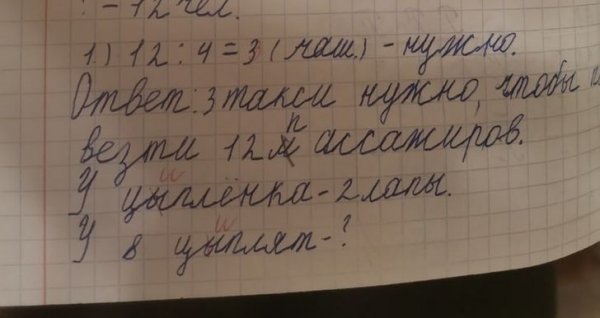 ? - 12 чел.
1.) 12 : 4 = 3 (маш.) - нужно.
Ответ: 3 такси нужно, чтобы
везти 12 пассажиров.
У цыплёнка - 2 лапы.
У 8 цыплят - ?